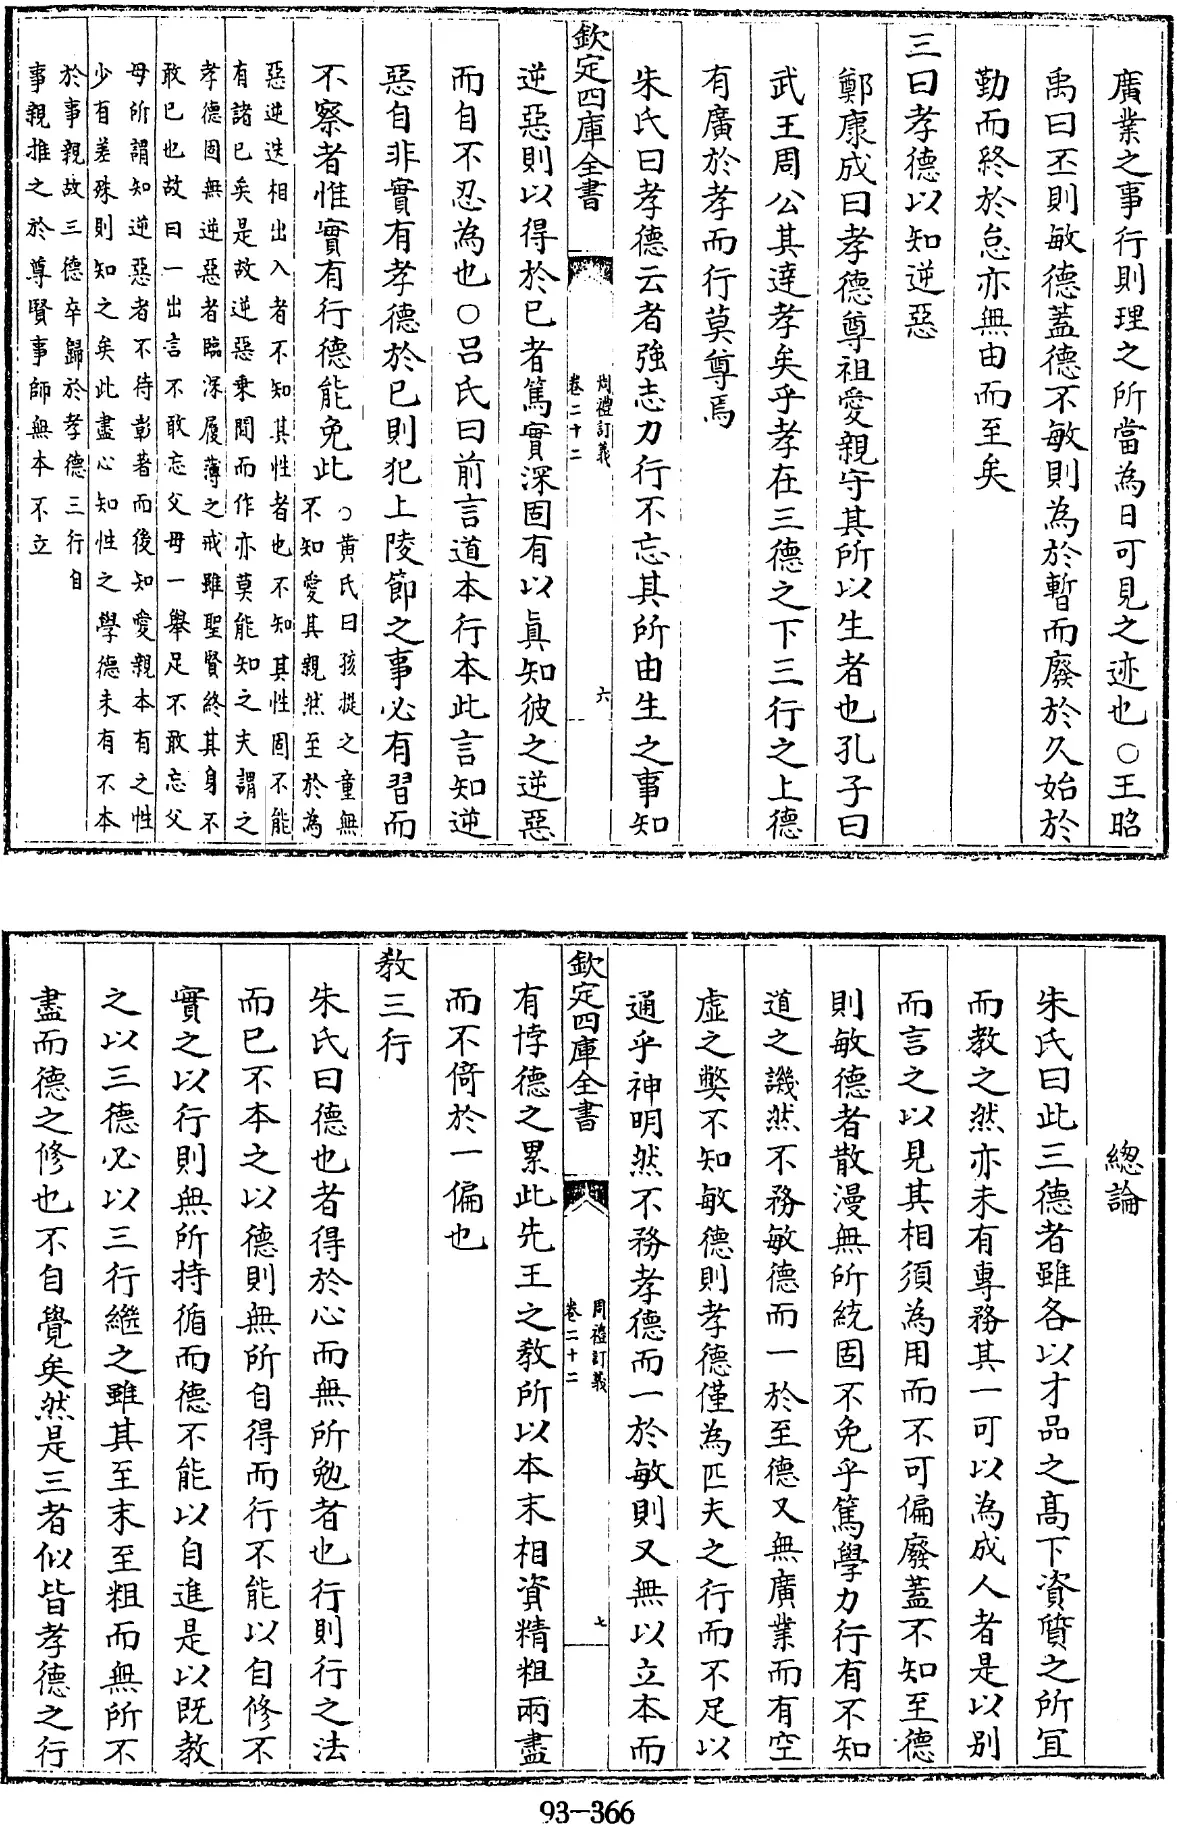 廣業之事行則理之所當為日可見之迹也○王昭
禹曰丕則敏德蓋德不敏則為於暫而廢於久始於
勤而終於怠亦無由而至矣
三曰孝德以知逆惡
鄭康成曰孝德尊祖愛親守其所以生者也孔子曰
武王周公其達孝矣乎孝在三德之下三行之上德
有廣於孝而行莫尊焉
朱氏曰孝德云者強志力行不忘其所由生之事知
欽定四庫全書
周禮訂義
卷二十二
六
逆惡則以得於已者篤實深固有以真知彼之逆惡
而自不忍為也○呂氏曰前言道本行本此言知逆
惡自非實有孝德於已則犯上陵節之事必有習而
不察者惟實有行德能免此
○黃氏曰孩提之童無
不知愛其親然至於為
惡逆迭相出入者不知其性者也不知其性固不能
有諸已矣是故逆惡乘間而作亦莫能知之夫謂之
孝德固無逆惡者臨深履薄之戒雖聖賢終其身不
敢已也故曰一出言不敢忘父母一舉足不敢忘父
母所謂知逆惡者不待彰著而後知愛親本有之性
少有差殊則知之矣此盡心知性之學德未有不本
於事親故三德卒歸於孝德三行自
事親推之於尊賢事師無本不立
總論
朱氏曰此三德者雖各以才品之高下資質之所宜
而教之然亦未有專務其一可以為成人者是以別
而言之以見其相須為用而不可偏廢蓋不知至德
則敏德者散漫無所統固不免乎篤學力行有不知
道之譏然不務敏德而一於至德又無廣業而有空
虛之弊不知敏德則孝德僅為匹夫之行而不足以
通乎神明然不務孝德而一於敏則又無以立本而
欽定四庫全書
周禮訂義
卷二十二
七
有悖德之累此先王之教所以本末相資精粗兩盡
而不倚於一偏也
教三行
朱氏曰德也者得於心而無所勉者也行則行之法
而已不本之以德則無所自得而行不能以自修不
實之以行則無所持循而德不能以自進是以既教
之以三德必以三行繼之雖其至末至粗而無所不
盡而德之修也不自覺矣然是三者似皆孝德之行
93-366